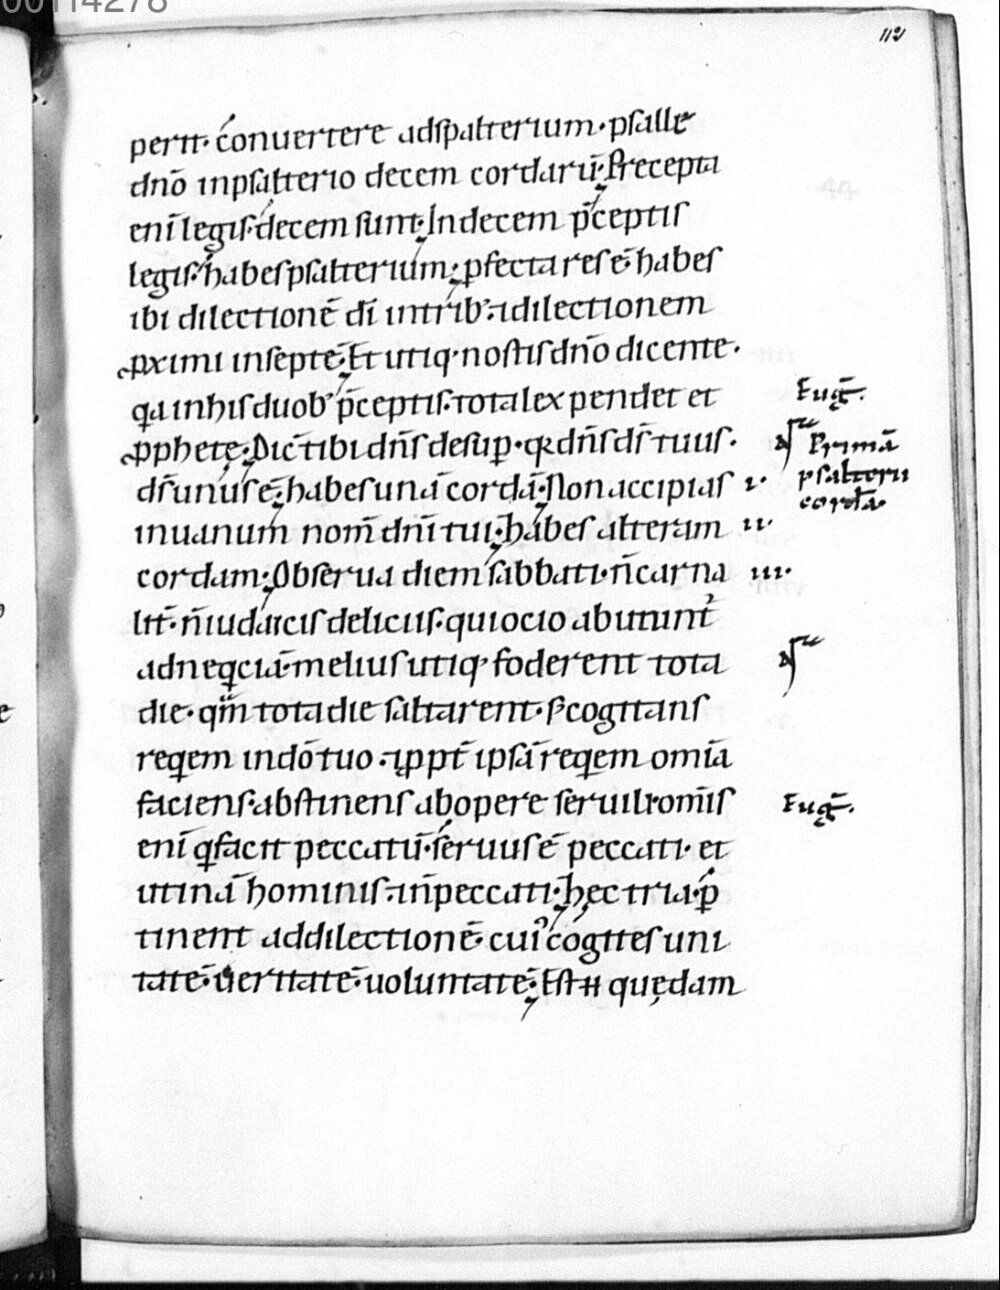 00114278
112
perit· conuertere adſpalterium· pſalle
dñō inpſalterio decem cordarū; Precepta
eni̅ legiſ decem ſunt; In decem p̄ceptiſ
legiſ· habeſ pſalterium; p̱fecta reſ ē habeſ
ibi dilectionē dī intrib' ⁊ dilectionem
ꝓximi inſeptē; Et utiq· noſtiſ dñō dicente·
qa inhiſ duob' p̄ceptiſ· tota lex pendet et
ꝓphetę; Dic̄ tibi dñſ deſup̱· qꝛ dñſ dſ̄ tuuſ·
dſ̄ unuſ ē; habeſ unā cordā; Non accipiaſ
inuanum nom̄ dnī tui; habeſ alteram
cordam; Obſerua diem ſabbati· n̄ carna
lit̄· n̄ iudaiciſ deliciiſ· qui ocio abutunt᷑
ad neq̱ciā· meliuſ utiq· foderent tota
die· qm̄ tota die ſaltarent· ſꝫ cogitanſ
reqem indō tuo· ⁊ ꝓpt̄ ipſā reqem omīa
facienſ· abſtinenſ ab opere ſeruili· om̄iſ
eni̅ q̱ facit peccatū· ſeruuſ ē peccati· et
utinā hominiſ· ⁊ n̄ peccati; hęc tria· p̱
tinent ad dilectionē· cui' cogiteſ uni
tatē· ueritatē· uoluntatē; Eſt ⁊ quędam
Eug̅·
Prima̅
pſalterii
corda̅·
i·
ii·
iii·
Eug̅·